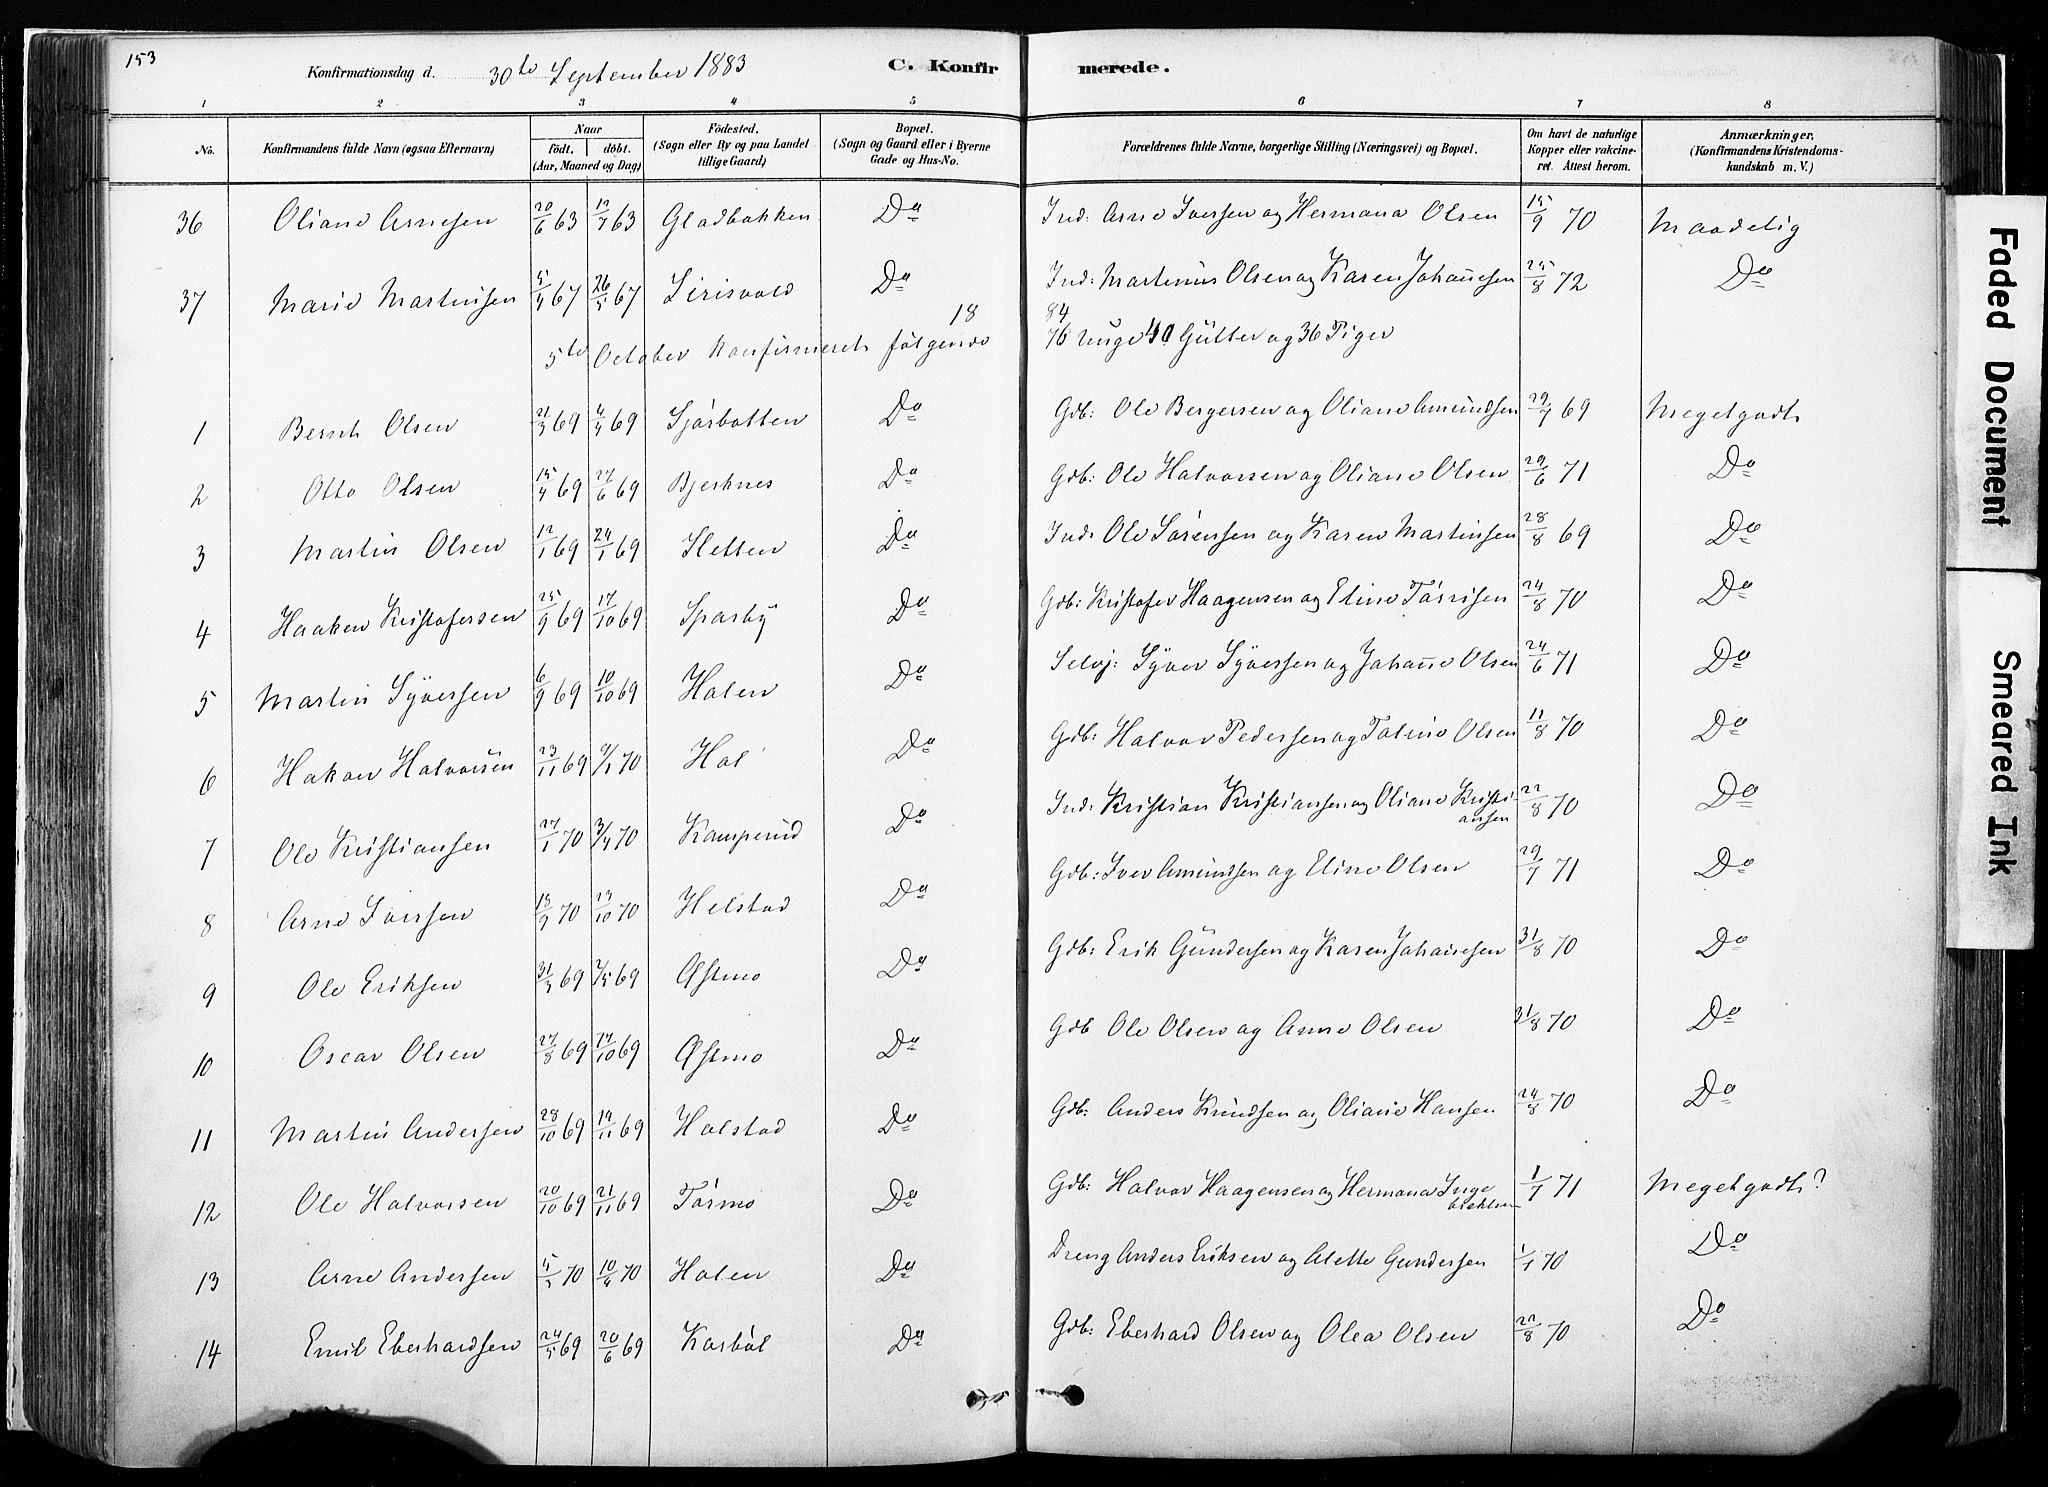 153
Konfirmationsdag d. 30te September 1883
C. Konfir merede.
1 2 3 4 5 6 7 8
No.
Konfirmandens fulde Navn (ogsaa Efternavn)
Naar
födt. döbt.
(Aar, Maaned og Dag)
Födested.
(Sogn eller By og paa Landet tillige Gaard)
Bopæl.
(Sogn og Gaard eller i Byerne Gade og Hus-No.
Forældrenes fulde Navne, borgerlige Stilling (Næringsvei) og Bopæl.
Om havt de naturlige Kopper eller vakcineret. Attest herom.
Anmærkninger,
(Konfirmandens Kristendomskundskab m. V.)
36 Oliane Arnesen 20/6 63 12/7 63 Gladbakken Do Ind: Arne Iversen og Hermana Olsen 15/9 70 Maadelig
37 Marie Martinsen 5/4 67 26/5 67 Do Ind: Martinus Olsen og Karen Johannesen 25/8 72 Do
5te October konfirmeret følgende 18 84
76 unge 40 Gutter og 36 Piger
1 Bernt Olsen 21/3 69 4/4 69 Sjørbotten Do Gdb: Ole Bergersen og Oliane Amundsen 29/7 69 Meget godt
2 Otto Olsen 15/4 69 27/6 69 Bjerknes Do Gdb: Ole Halvorsen og Oliane Olsen 29/6 71 Do
3 Martin Olsen 12/1 69 24/1 69 Sletten Do Ind: Ole Sørensen og Karen Martinsen 28/8 69 Do
4 Haaken Kristofersen 25/9 69 17/10 69 Sparby Do Gdb: Kristofer Haagensen og Eline Tørrisen 24/8 70 Do
5 Martin Syversen 6/9 69 10/10 69 Holen Do Selvj: Syver Syversen og Johanne Olsen 24/6 71 Do
6 Hakon Halvorsen 23/11 69 9/1 70 Hol Do Gdb: Halvor Pedersen og Taline Olsen 11/8 70 Do
7 Ole Kristiansen 27/1 70 3/4 70 Kamperud Do Ind: Kristian Kristiansen og Oliane Kristiansen 22/8 70 Do
8 Arne Iversen 13/9 70 23/10 70 Helstad Do Gdb: Iver Amundsen og Eline Olsen 29/7 71 Do
9 Ole Eriksen 31/3 69 2/5 69 Østmo Do Gdb: Erik Gundersen og Karen Johannesen 31/8 70 Do
10 Oscar Olsen 27/8 69 17/10 69 Østmo Do Gdb Ole Olsen og Anne Olsen 31/8 70 Do
11 Martin Andersen 28/10 69 14/11 69 Holstad Do Gdb: Anders Knudsen og Oliane Hansen 24/8 70 Do
12 Ole Halvorsen 20/10 69 21/11 69 Tørmo Do Gdb: Halvor Haagensen og Hermana Ingebrektsen 1/7 71 Meget godt?
13 Arne Andersen 5/3 70 10/4 70 Holen Do Dreng Anders Eriksen og Alette Gundersen 1/1 70 Do
14 Emil Eberhardsen 24/5 69 20/6 69 Karbøl Do Gdb: Eberhard Olsen og Olea Olsen 22/8 70 Do
Faded Document
Smeared Ink